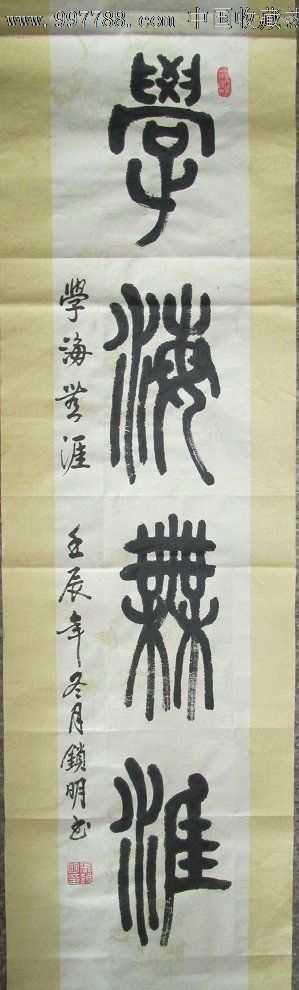 www.997788.com 中国收藏热
學海無涯
學海無涯 壬辰年冬月鎖明書